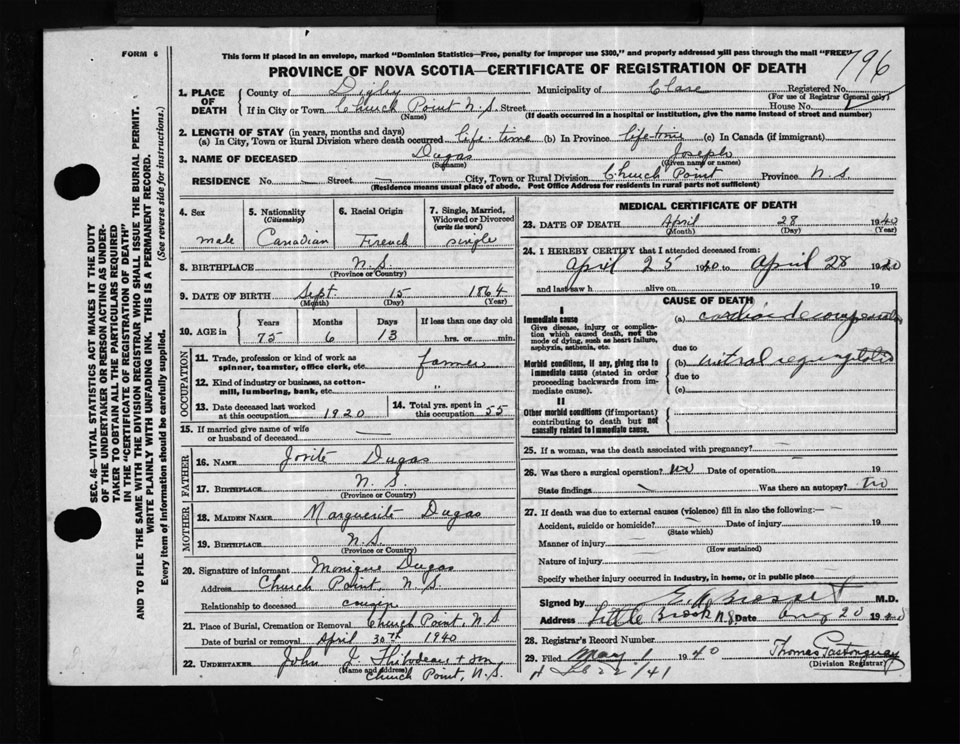 FORM 6
This form if placed in an envelope, marked "Dominion Statistics—Free, penalty for improper use $300," and properly addressed will pass through the mail "FREE"
796
PROVINCE OF NOVA SCOTIA—CERTIFICATE OF REGISTRATION OF DEATH
1. PLACE OF DEATH
County of Digby Municipality of Clare Registered No.
(For use of Registrar General only)
If in City or Town Church Point N.S. Street House No.
(Name) (If death occurred in a hospital or institution, give the name instead of street and number)
2. LENGTH OF STAY (in years, months and days)
(a) In City, Town or Rural Division where death occurred life time (b) In Province life-time (c) In Canada (if immigrant)
3. NAME OF DECEASED Dugas Joseph
(Surname) (Given name or names)
RESIDENCE No. — Street — City, Town or Rural Division Church Point Province N.S.
(Residence means usual place of abode. Post Office Address for residents in rural parts not sufficient)
4. Sex
male
5. Nationality
(Citizenship)
Canadian
6. Racial Origin
French
7. Single, Married, Widowed or Divorced
(write the word)
single
8. BIRTHPLACE N.S.
(Province or Country)
9. DATE OF BIRTH Sept. 15 1864
(Month) (Day) (Year)
10. AGE in
Years Months Days If less than one day old
75 6 13 hrs. or min.
OCCUPATION
11. Trade, profession or kind of work as spinner, teamster, office clerk, etc. farmer
12. Kind of industry or business, as cotton-mill, lumbering, bank, etc. "
13. Date deceased last worked at this occupation 1920
14. Total yrs. spent in this occupation 55
15. If married give name of wife or husband of deceased —
FATHER
16. NAME Dugas
17. BIRTHPLACE N.S.
(Province or Country)
MOTHER
18. MAIDEN NAME Marguerite Dugas
19. BIRTHPLACE N.S.
(Province or Country)
20. Signature of informant Monique Dugas
Address Church Point, N.S.
Relationship to deceased cousin
21. Place of Burial, Cremation or Removal Church Point, N.S
Date of burial or removal April 30th 1940
22. UNDERTAKER John J. Thibodeau + son
(Name and address)
Church Point, N.S.
MEDICAL CERTIFICATE OF DEATH
23. DATE OF DEATH April 28 1940
(Month) (Day) (Year)
24. I HEREBY CERTIFY that I attended deceased from:
April 25 1940 to April 28 1940
and last saw h alive on 19
CAUSE OF DEATH
I
Immediate cause
Give disease, injury or complication which caused death, not the mode of dying, such as heart failure, asphyxia, asthenia, etc.
(a)
due to
Morbid conditions, if any, giving rise to immediate cause (stated in order proceeding backwards from immediate cause).
(b) mitral
due to
(c)
II
Other morbid conditions (if important) contributing to death but not causally related to immediate cause.
25. If a woman, was the death associated with pregnancy?
26. Was there a surgical operation? no Date of operation 19
State findings Was there an autopsy? no
27. If death was due to external causes (violence) fill in also the following:—
Accident, suicide or homicide? Date of injury 19
(State which)
Manner of injury
(How sustained)
Nature of injury
Specify whether injury occurred in industry, in home, or in public place
Signed by M.D.
Address Little Brook N.S. Date Aug 20 1940
28. Registrar's Record Number
29. Filed May 1 1940 Thomas
(Division Registrar)
SEC. 46—VITAL STATISTICS ACT MAKES IT THE DUTY
OF THE UNDERTAKER OR PERSON ACTING AS UNDER-
TAKER TO OBTAIN ALL THE PARTICULARS REQUIRED
IN THE "CERTIFICATE OF REGISTRATION OF DEATH"
AND TO FILE THE SAME WITH THE DIVISION REGISTRAR WHO SHALL ISSUE THE BURIAL PERMIT.
WRITE PLAINLY WITH UNFADING INK. THIS IS A PERMANENT RECORD.
Every item of information should be carefully supplied. (See reverse side for instructions.)